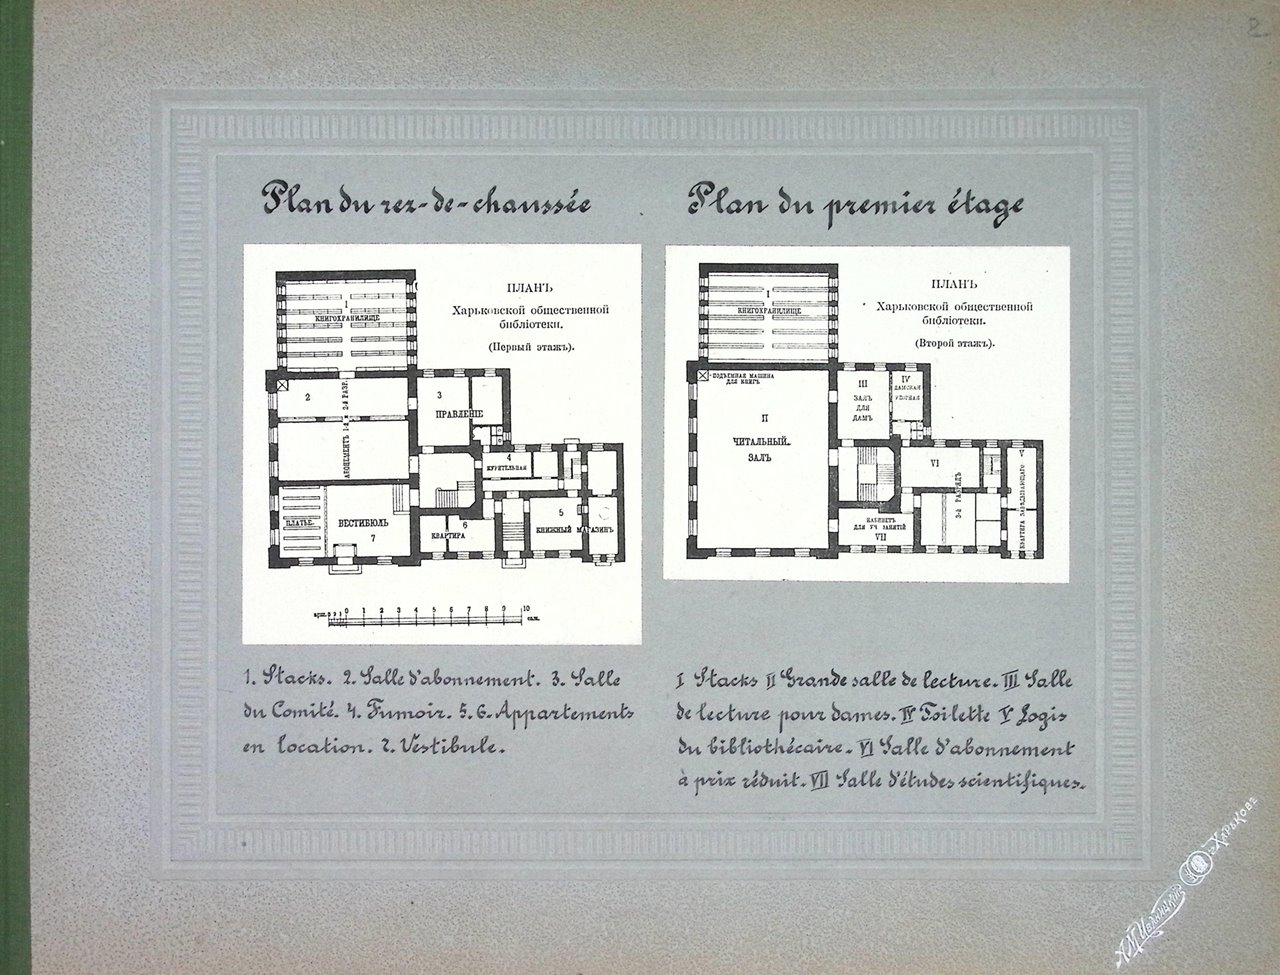 2
Plan du rez-de-chaussée
ПЛАНЪ
Харьковской общественной
библіотеки.
(Первый этажъ).
1
КНИГОХРАНИЛИЩЕ
2
АБОНЕМЕНТЪ 1-й и 2-й РАЗР.
3
ПРАВЛЕНІЕ
4
КУРИТЕЛЬНАЯ
5
КНИЖНЫЙ МАГАЗИНЪ
6
КВАРТИРА
ПЛАТЬЕ.
ВЕСТИБЮЛЬ
7
0 1 2 3 4 5 6 7 8 9 10
саж.
1. Stacks. 2. Salle d'abonnement. 3. Salle
du Comité. 4. Fumoir. 5. 6. Appartements
en location. 7. Vestibule.
Plan du premier étage
ПЛАНЪ
Харьковской общественной
библіотеки.
(Второй этажъ).
I
КНИГОХРАНИЛИЩЕ
ПОДЪЕМНАЯ МАШИНА
ДЛЯ КНИГЪ
II
ЧИТАЛЬНЫЙ
ЗАЛЪ
III
ЗАЛЪ
ДЛЯ
ДАМЪ
IV
ДАМСКАЯ
УБОРНАЯ
V
КВАРТИРА ЗАВѢДЫВАЮЩАГО
VI
3-й РАЗРЯДЪ
КАБИНЕТЪ
ДЛЯ УЧ. ЗАНЯТІЙ
VII
I Stacks II Grande salle de lecture. III Salle
de lecture pour dames. IV Toilette V Logis
du bibliothécaire. VI Salle d'abonnement
à prix réduit. VII Salle d'études scientifiques.
А.М.Иваницкій
въ Харьковѣ